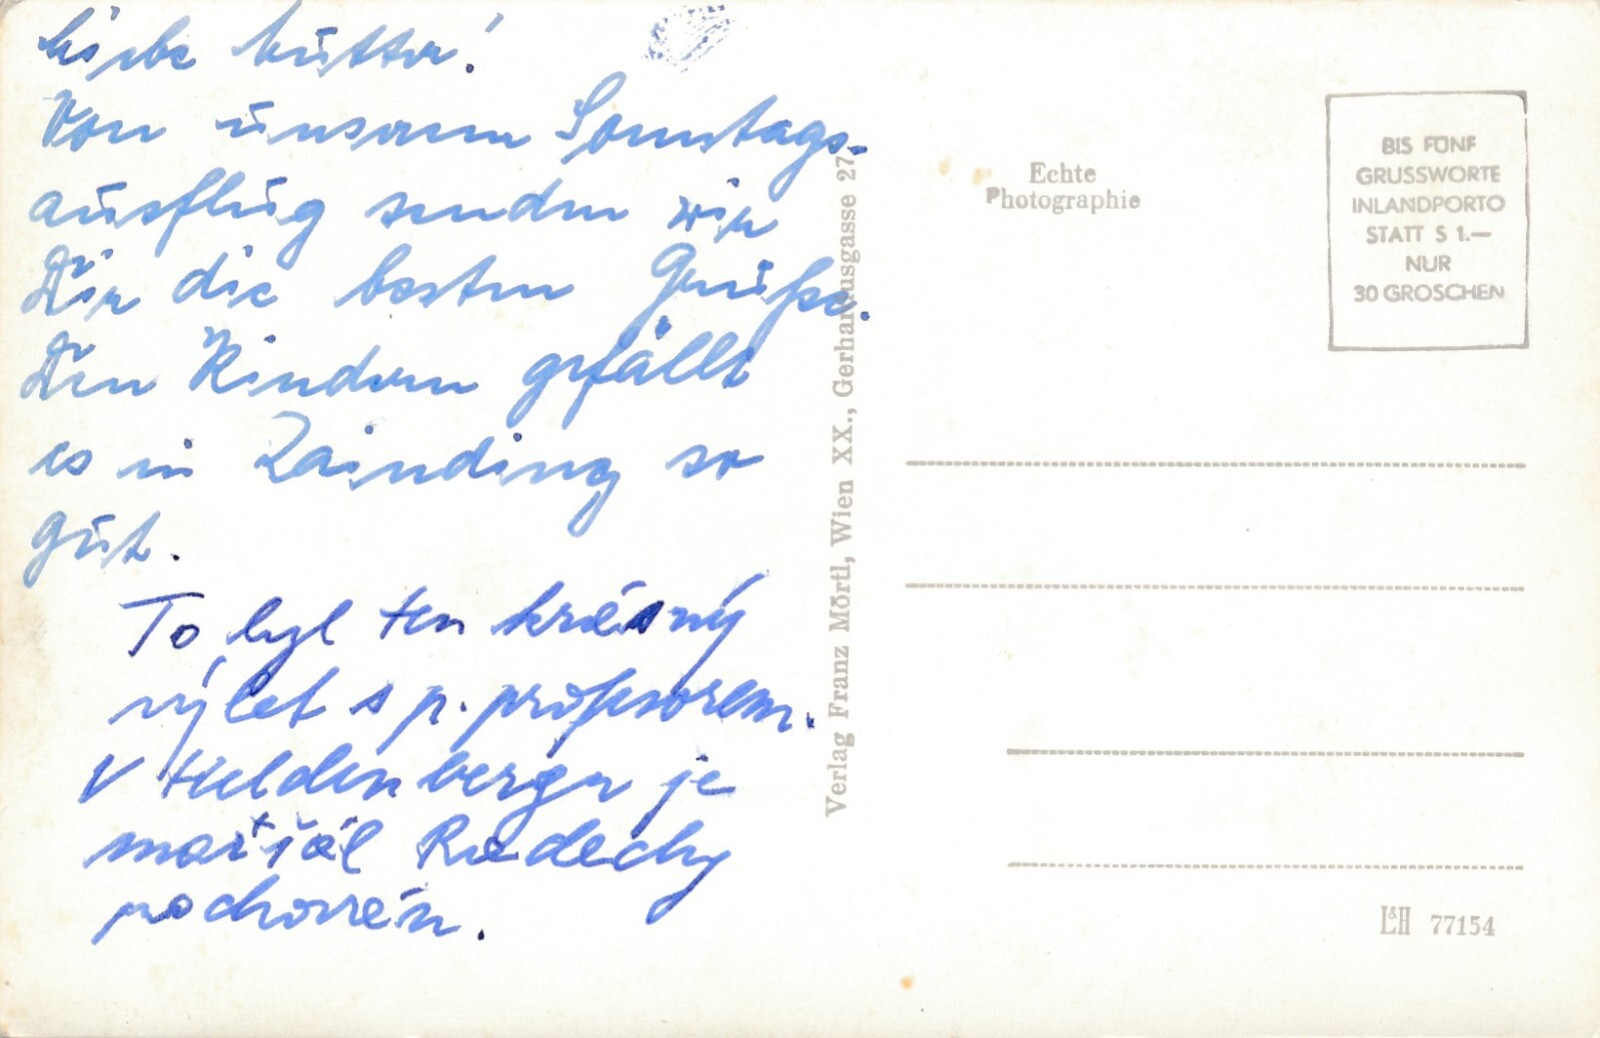 Liebe Mutter!
Von unserem Sonntags-
ausflug senden wir
Dir die besten Grüße.
Den Kindern gefällt
es in Zainding so
gut.
To byl ten krásný
výlet s p. profesorem.
V Heldenbergu je
maršál Radecký
pochován.
Verlag Franz Mörtl, Wien XX., Gerhardusgasse 27
Echte
Photographie
BIS FÜNF
GRUSSWORTE
INLANDPORTO
STATT S 1.—
NUR
30 GROSCHEN
L&H 77154